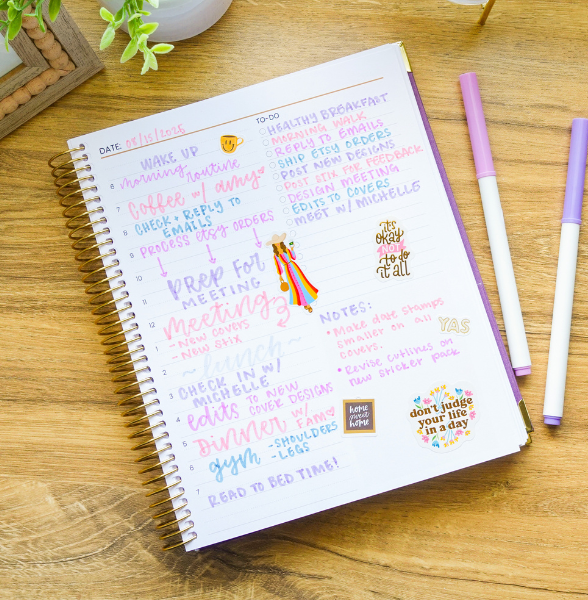 DATE: 05/15/2025
WAKE UP
6 morning routine
7 Coffee w/ amy
8 CHECK + REPLY TO
EMAILS
9 PROCESS ETSY ORDERS
10
11 PREP FOR
MEETING
12 meeting
- NEW COVERS
1 - NEW STIX
2 ~lunch~
3 CHECK IN W/
MICHELLE
4 edits TO NEW
COVER DESIGNS
5 DINNER W/ FAM
6 gym - SHOULDERS
- LEGS
7 READ TO BED TIME!
TO-DO
HEALTHY BREAKFAST
MORNING WALK
REPLY TO EMAILS
SHIP ETSY ORDERS
POST NEW DESIGNS
POST STIX FOR FEEDBACK
DESIGN MEETING
EDITS TO COVERS
MEET W/ MICHELLE
it's
okay
not
to do
it all
NOTES:
• Make date stamps
smaller on all
covers.
• Revise cutlines on
new sticker pack
YAS
home
sweet
home
don't judge
your life
in a day